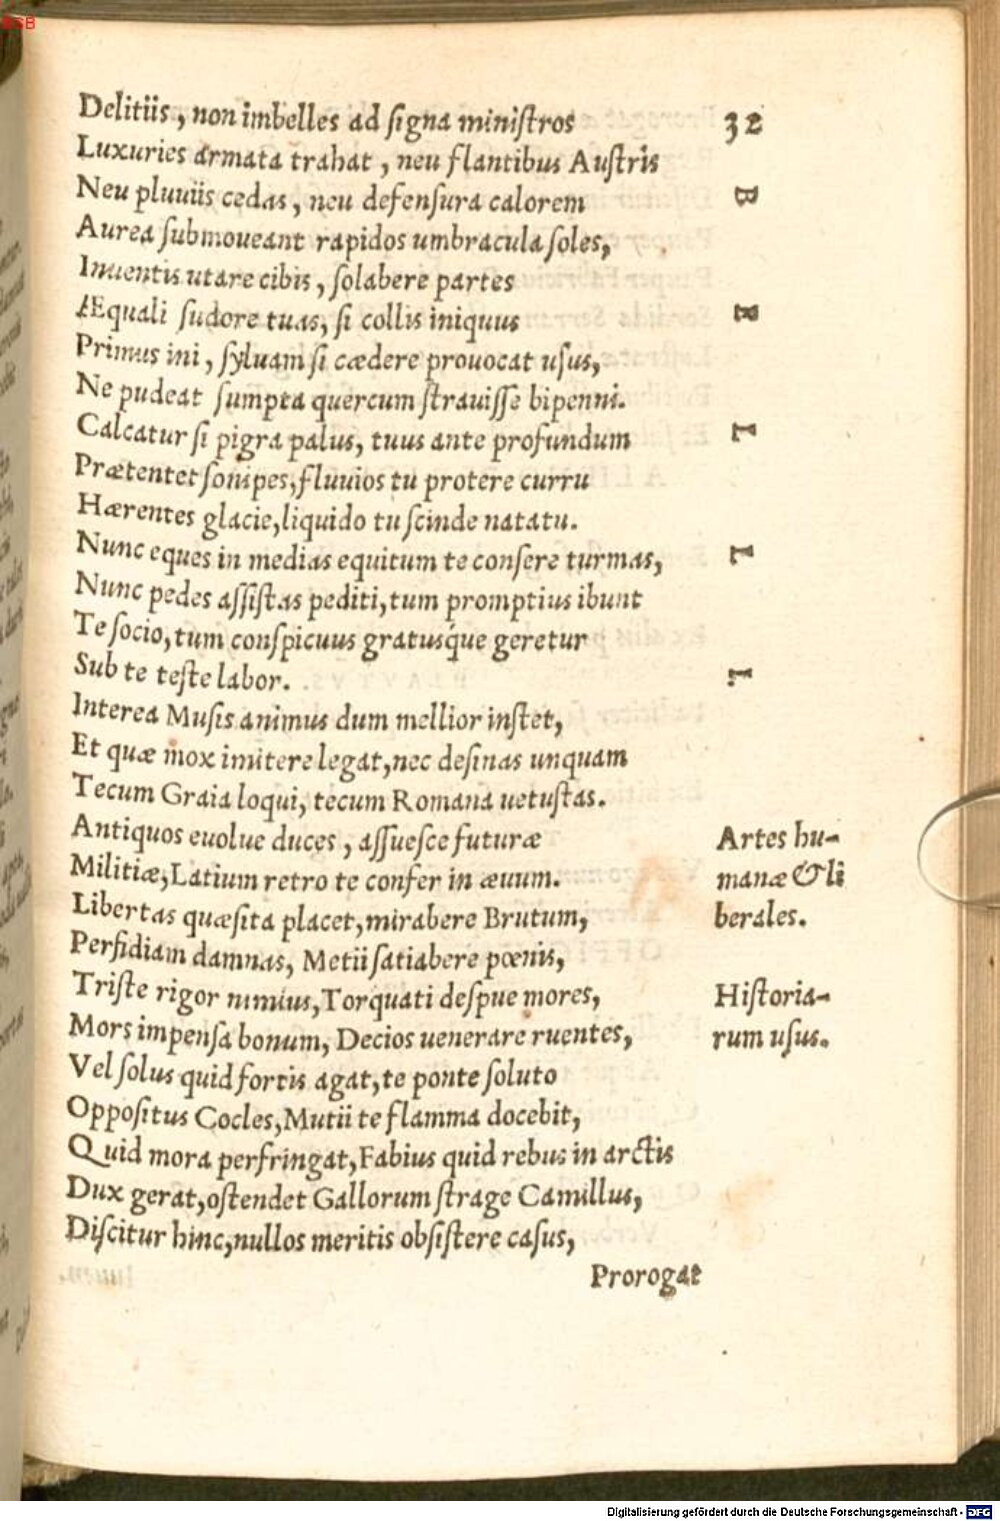 BSB
Delitiis, non imbelles ad signa ministros
32
Luxuries armata trahat, neu flantibus Austris
Neu pluuiis cedas, neu defensura calorem
B
Aurea submoueant rapidos umbracula soles,
Inuentis utare cibis, solabere partes
Æquali sudore tuas, si collis iniquus
E
Primus ini, syluam si cædere prouocat usus,
Ne pudeat sumpta quercum strauisse bipenni.
Calcatur si pigra palus, tuus ante profundum
L
Prætentet sonipes, fluuios tu protere curru
Hærentes glacie, liquido tu scinde natatu.
Nunc eques in medias equitum te consere turmas,
L
Nunc pedes assistas pediti, tum promptius ibunt
Te socio, tum conspicuus gratusq́ue geretur
Sub te teste labor.
I.
Interea Musis animus dum mellior instet,
Et quæ mox imitere legat, nec desinas unquam
Tecum Graia loqui, tecum Romana uetustas.
Antiquos euolue duces, assuesce futuræ
Artes hu-
Militiæ, Latium retro te confer in æuum.
manæ & li
Libertas quæsita placet, mirabere Brutum,
berales.
Perfidiam damnas, Metii satiabere pœnis,
Triste rigor nimius, Torquati despue mores,
Historia-
Mors impensa bonum, Decios uenerare ruentes,
rum usus.
Vel solus quid fortis agat, te ponte soluto
Oppositus Cocles, Mutii te flamma docebit,
Quid mora perfringat, Fabius quid rebus in arctis
Dux gerat, ostendet Gallorum strage Camillus,
Discitur hinc, nullos meritis obsistere casus,
Prorogat
Digitalisierung gefördert durch die Deutsche Forschungsgemeinschaft - DFG